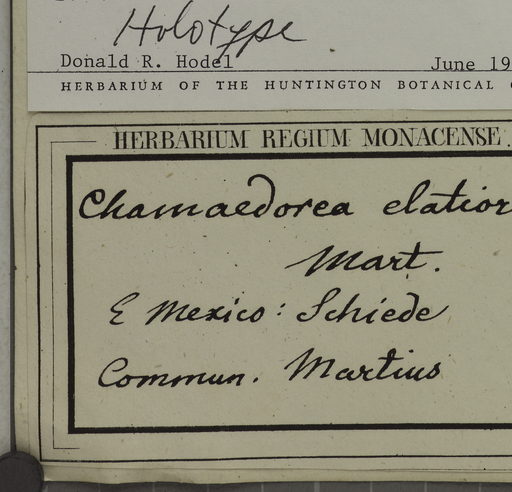 Holotype
Donald R. Hodel June 19
HERBARIUM OF THE HUNTINGTON BOTANICAL
HERBARIUM REGIUM MONACENSE.
Chamaedorea elatior
Mart.
E Mexico: Schiede
Commun. Martius